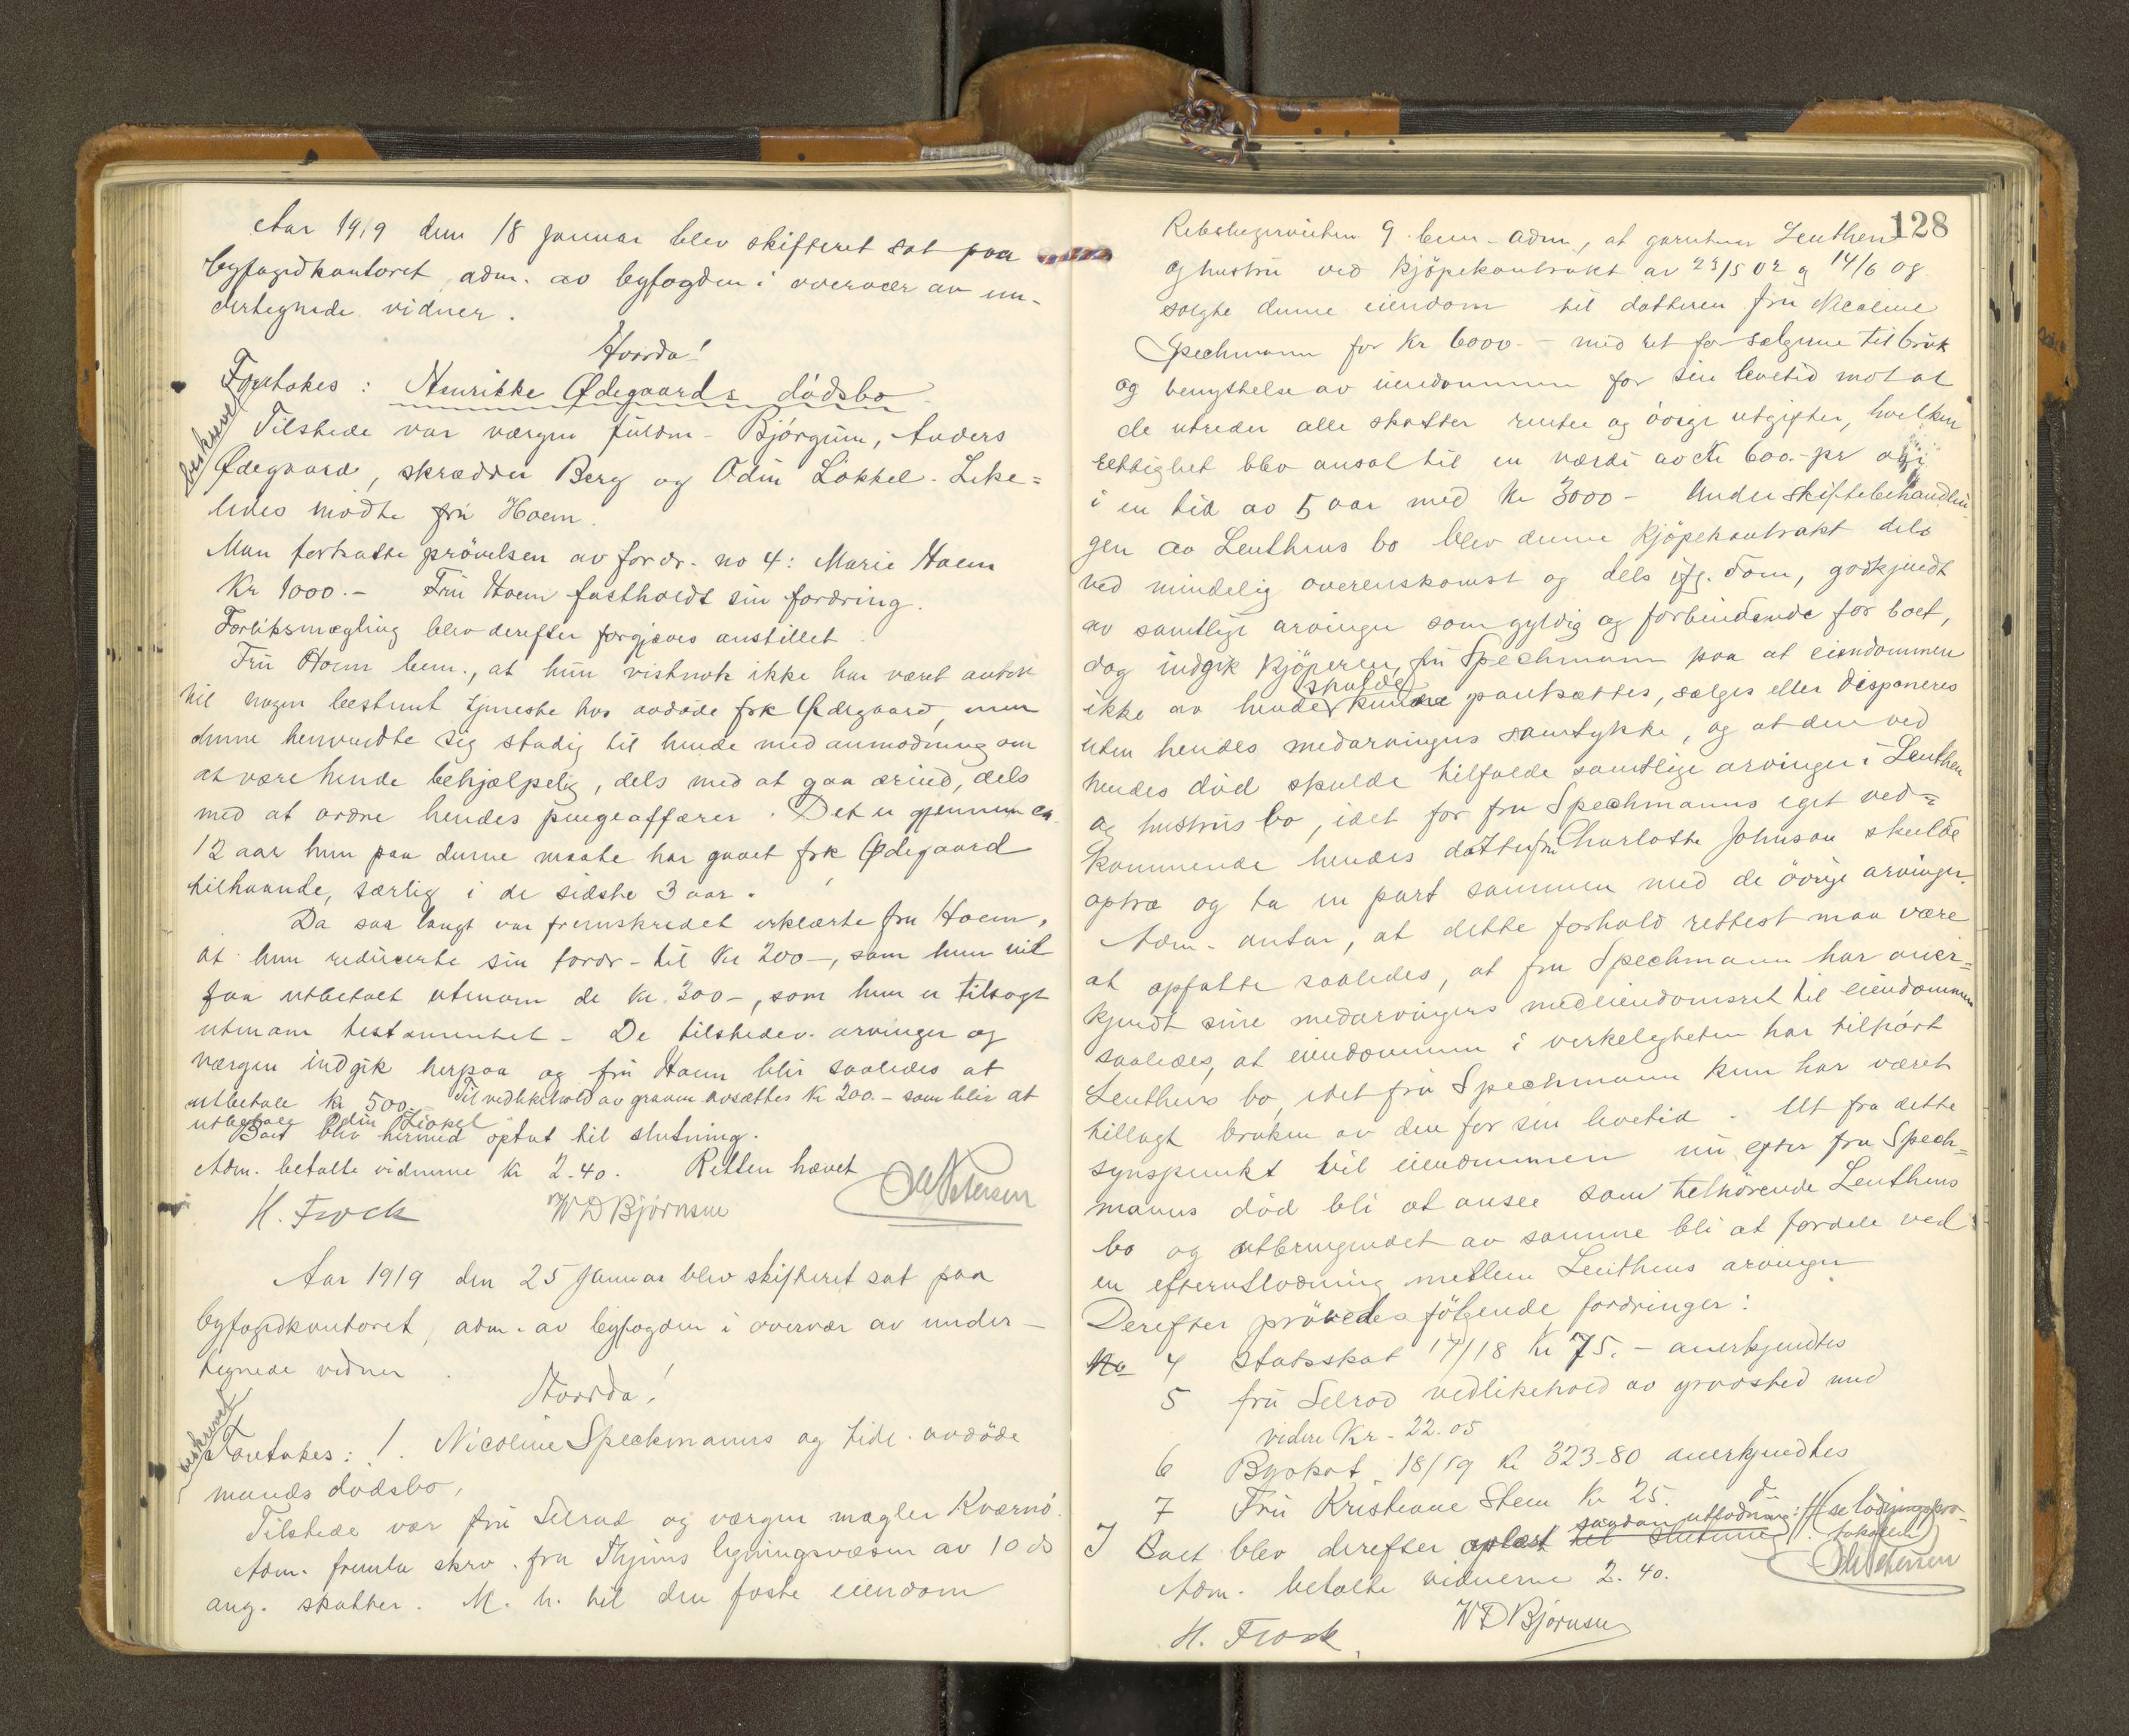 Aar 1919 den 18 Januar blev skifteret sat paa
byfogdkontoret, adm. av byfogden i overvær av un-
dertegnede vidner.
Hvorda!
Foretokes: Henrikke Ødegaards dödsbo
beskrevet
Tilstede var værgen fuldm. Bjórgum, Anders
Ødegaard, skrædder Berg og Odin Lökkel. Like=
ledes mödte fru Hoem.
Man fortsatte prövelsen av fordr. no 4: Marie Hoem
Kr 1000.- Fru Hoem fastholdt sin fordring.
Forliksmægling blev derefter forgjæves anstillet
Fru Hoem bem., at hun vistnok ikke har været antat
til nogen bestemt tjeneste hos avdöde frk Ødegaard, men
denne henvendte sig stadig til hende med anmodning om
at være hende behjælpelig, dels med at gaa ærind, dels
med at ordne hendes pengeaffærer. Det er gjennem ca.
12 aar hun paa denne maate har gaaet frk Ødegaard
tilhaande, særlig i de sidste 3 aar.
Da saa langt var fremskredet erklærte fru Hoem,
at hun reducerte sin fordr. til Kr 200-, som hun vil
faa utbetalt utenom de Kr. 300-, som hun er tilsagt
utenom testamentet - De tilstedev. arvinger og
værgen indgik herpaa og fru Hoem blir saaledes at
utbetale Kr 500.- Til vedlikehold av graven avsættes Kr 200.- som blir at
utbetale Odin Lökkel
Boet blev hermed optat til slutning.
Adm. betalte vidnerne Kr 2.40. Retten hævet
H. Frock W D Bjørnsen Petersen
Aar 1919 den 25 Januar blev skifteret sat paa
byfogdkontoret, adm. av byfogden i overvær av under-
tegnede vidner.
Hvorda!
beskrevet
Foretokes: 1. Nicoline Speckmanns og tidl. avdöde
mands dödsbo,
Tilstede var fru Selrod og værgen mægler Kværnö.
Adm. fremla skrv. fra Thjems ligningsvæsen av 10 ds
ang. skatter. M. h. til den faste eiendom
128
9 bem. adm., at gartner Leuthen
og hustru ved kjöpekontrakt av 23/5 02 og 14/6 08
solgte denne eiendom til datteren fru Nicoline
Spechmann for Kr 6000.- med ret for sælgerne til bruk
og benyttelse av eiendommen for sin levetid mot at
de utreder alle skatter renter og övrige utgifter, hvilken
rettighet blev ansat til en værdi av Kr 600.- pr aar
i en tid av 5 aar med Kr 3000- Under skiftebehandlin-
gen av Leuthens bo blev denne kjöpekontrakt dels
ved mindelig overenskomst og dels ifg. dom, godkjendt
av samtlige arvinger som gyldig og forbindende for boet,
dog indgik kjöperen, fru Spechmann paa at eiendommen
ikke av hende skulde kunne pantsættes, sælges eller disponeres
uten hendes medarvingers samtykke, og at den ved
hendes död skulde tilfalde samtlige arvinger i Leuthen
og hustrus bo, idet for fru Spechmanns eget ved=
kommende hendes datter fru Charlotte Johnson skulde
optræ og ta en part sammen med de övrige arvinger.
Adm. antar, at dette forhold rettest maa være
at opfatte saaledes, at fru Spechmann har aner=
kjendt sine medarvingers medeiendomsret til eiendommen
saaledes, at eiendommen i virkeligheten har tilhört
Leuthens bo, idet fru Spechmann kun har været
tillagt bruken av den for sin levetid. Ut fra dette
synspunkt vil eiendommen nu efter fru Spech=
manns död bli at ansee som tilhörende Leuthens
bo og utbringendet av samme bli at fordele ved
en efterutlodning mellem Leuthens arvinger
Derefter prövedes fölgende fordringer:
No 4 Statsskat 17/18 Kr 75.- anerkjendtes
5 fru Selrod vedlikehold av gravsted med
videre Kr. 22.05
6 Byskat 18/19 Kr 323.80 anerkjendtes
7 Fru Kristiane Stem Kr 25. do
I Boet blev derefter oplæst til slutning saadan utlodning: // se lodningspro-
tokollen
Adm. betalte vidnerne 2.40. Petersen
H. Frock W D Bjørnsen